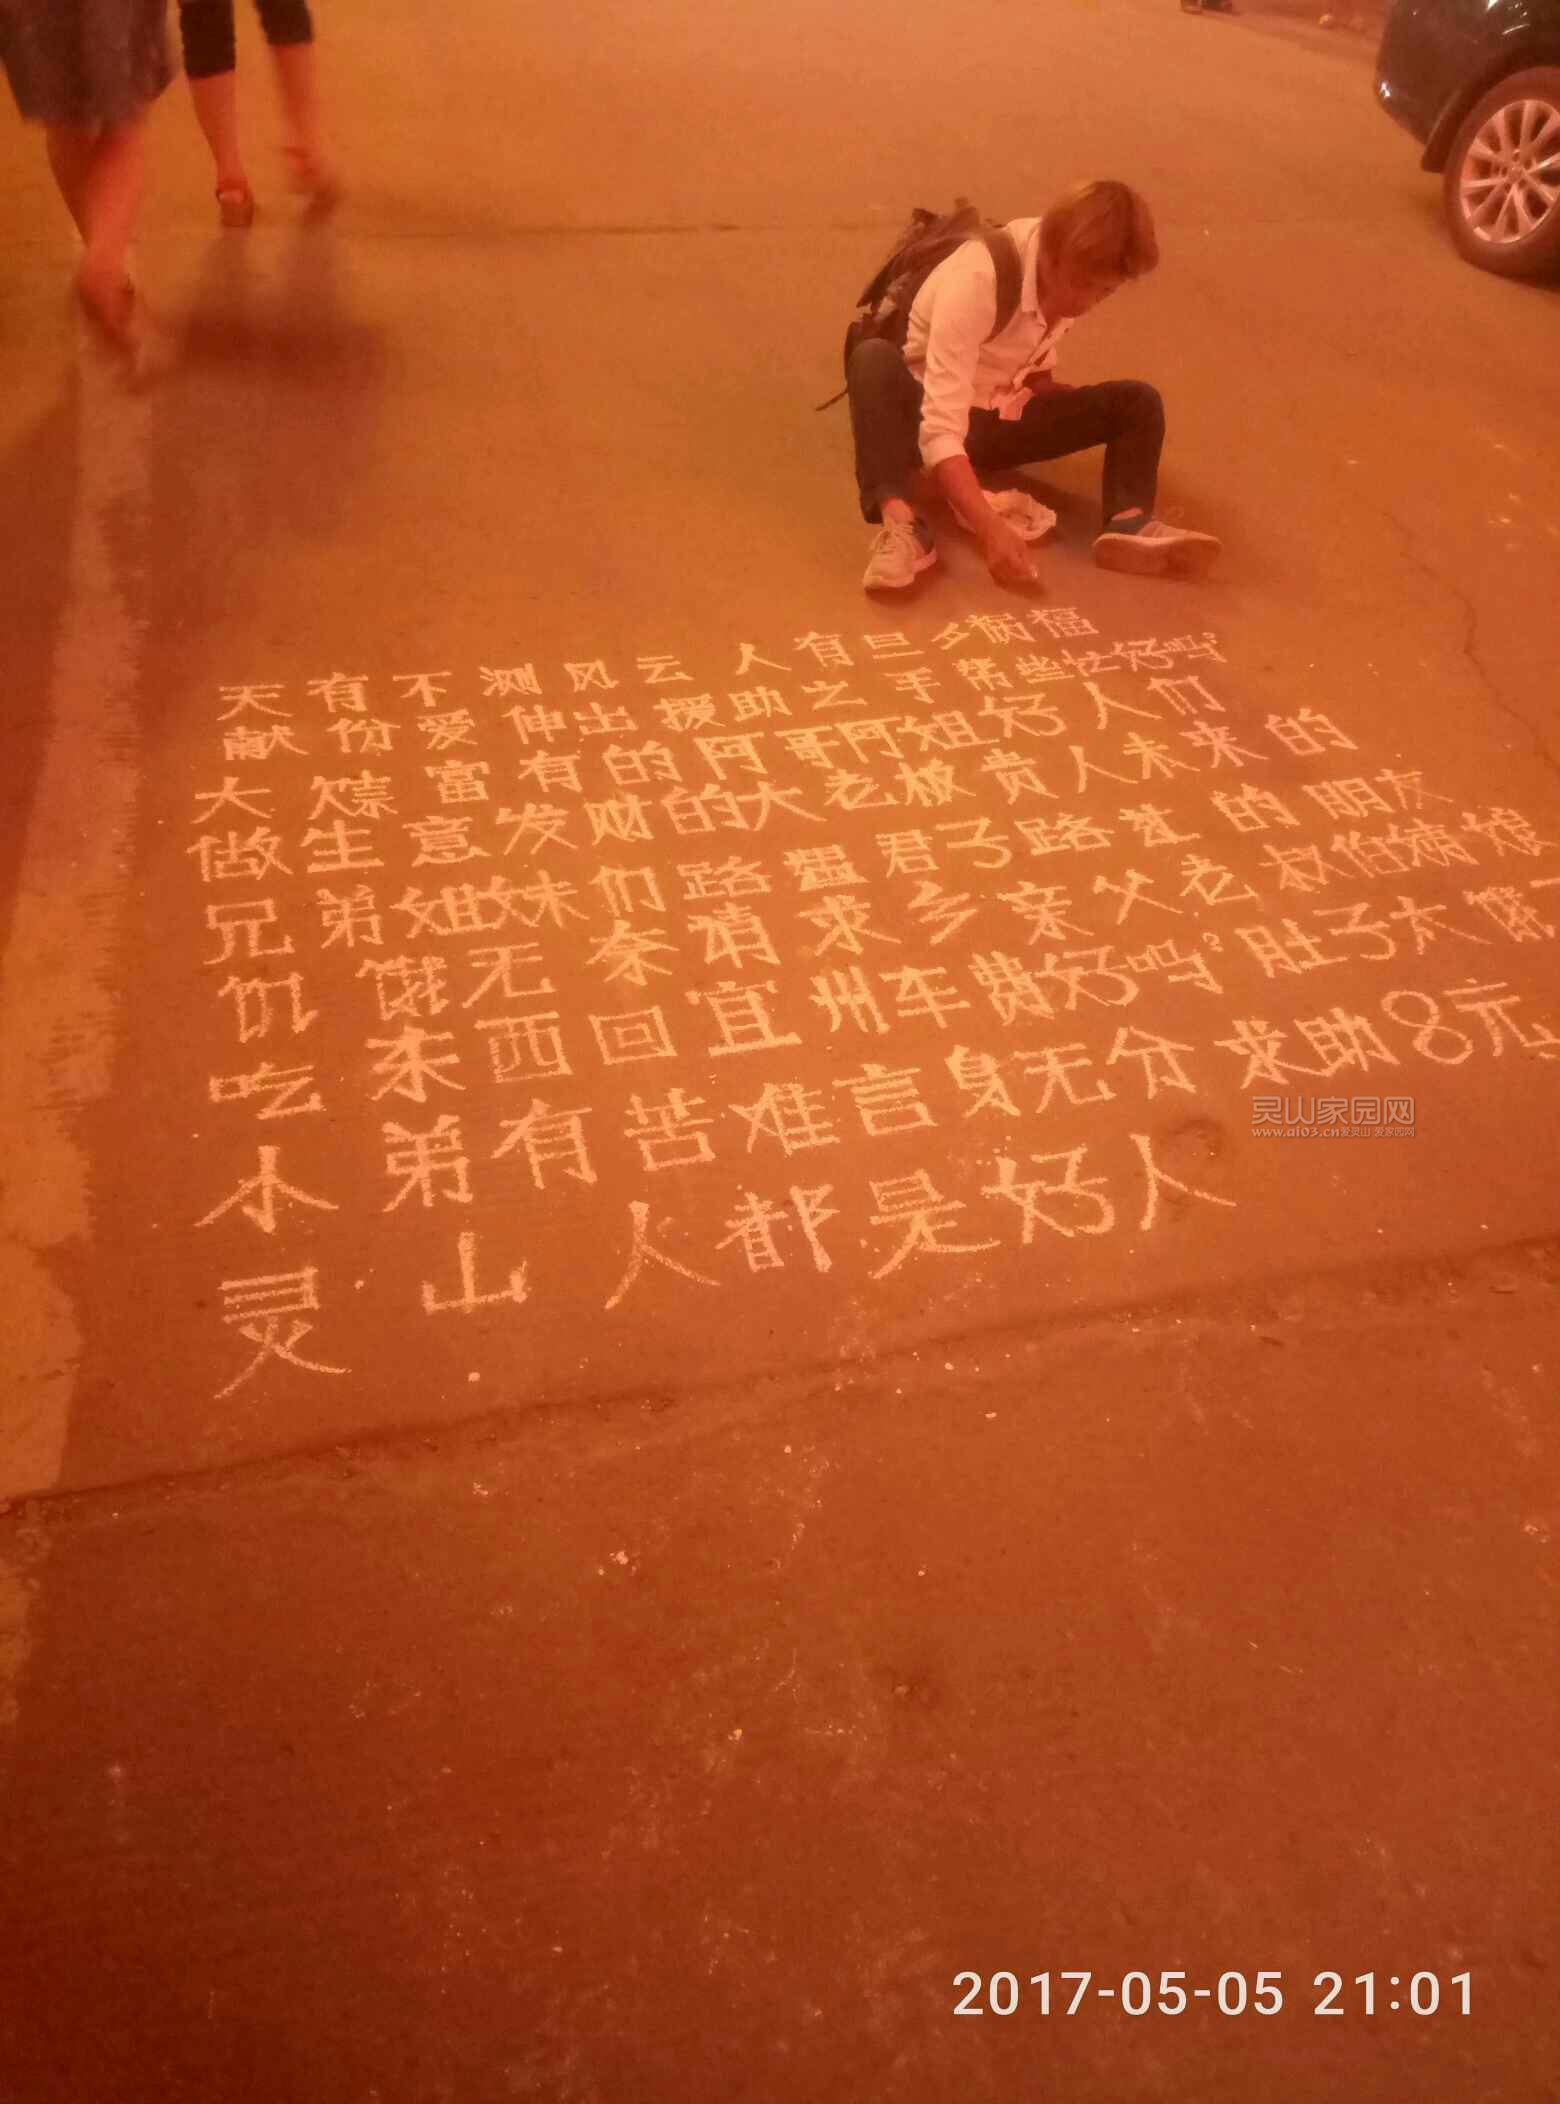 天有不测风云 人有旦夕病福
献份爱伸出援助之手帮些忙好吗?
大 富有的阿哥阿姐好人们
做生意发财的大老板贵人未来的
兄弟姐妹们路遇君子路过的朋友
饥饿无奈请求乡亲父老叔伯姨娘
吃东西回宜州车费好吗?肚子太饿了
小弟有苦难言身无分求助8元
灵山人都是好人
灵山家园网
www.ai03.cn爱灵山 爱家园网
2017-05-05 21:01